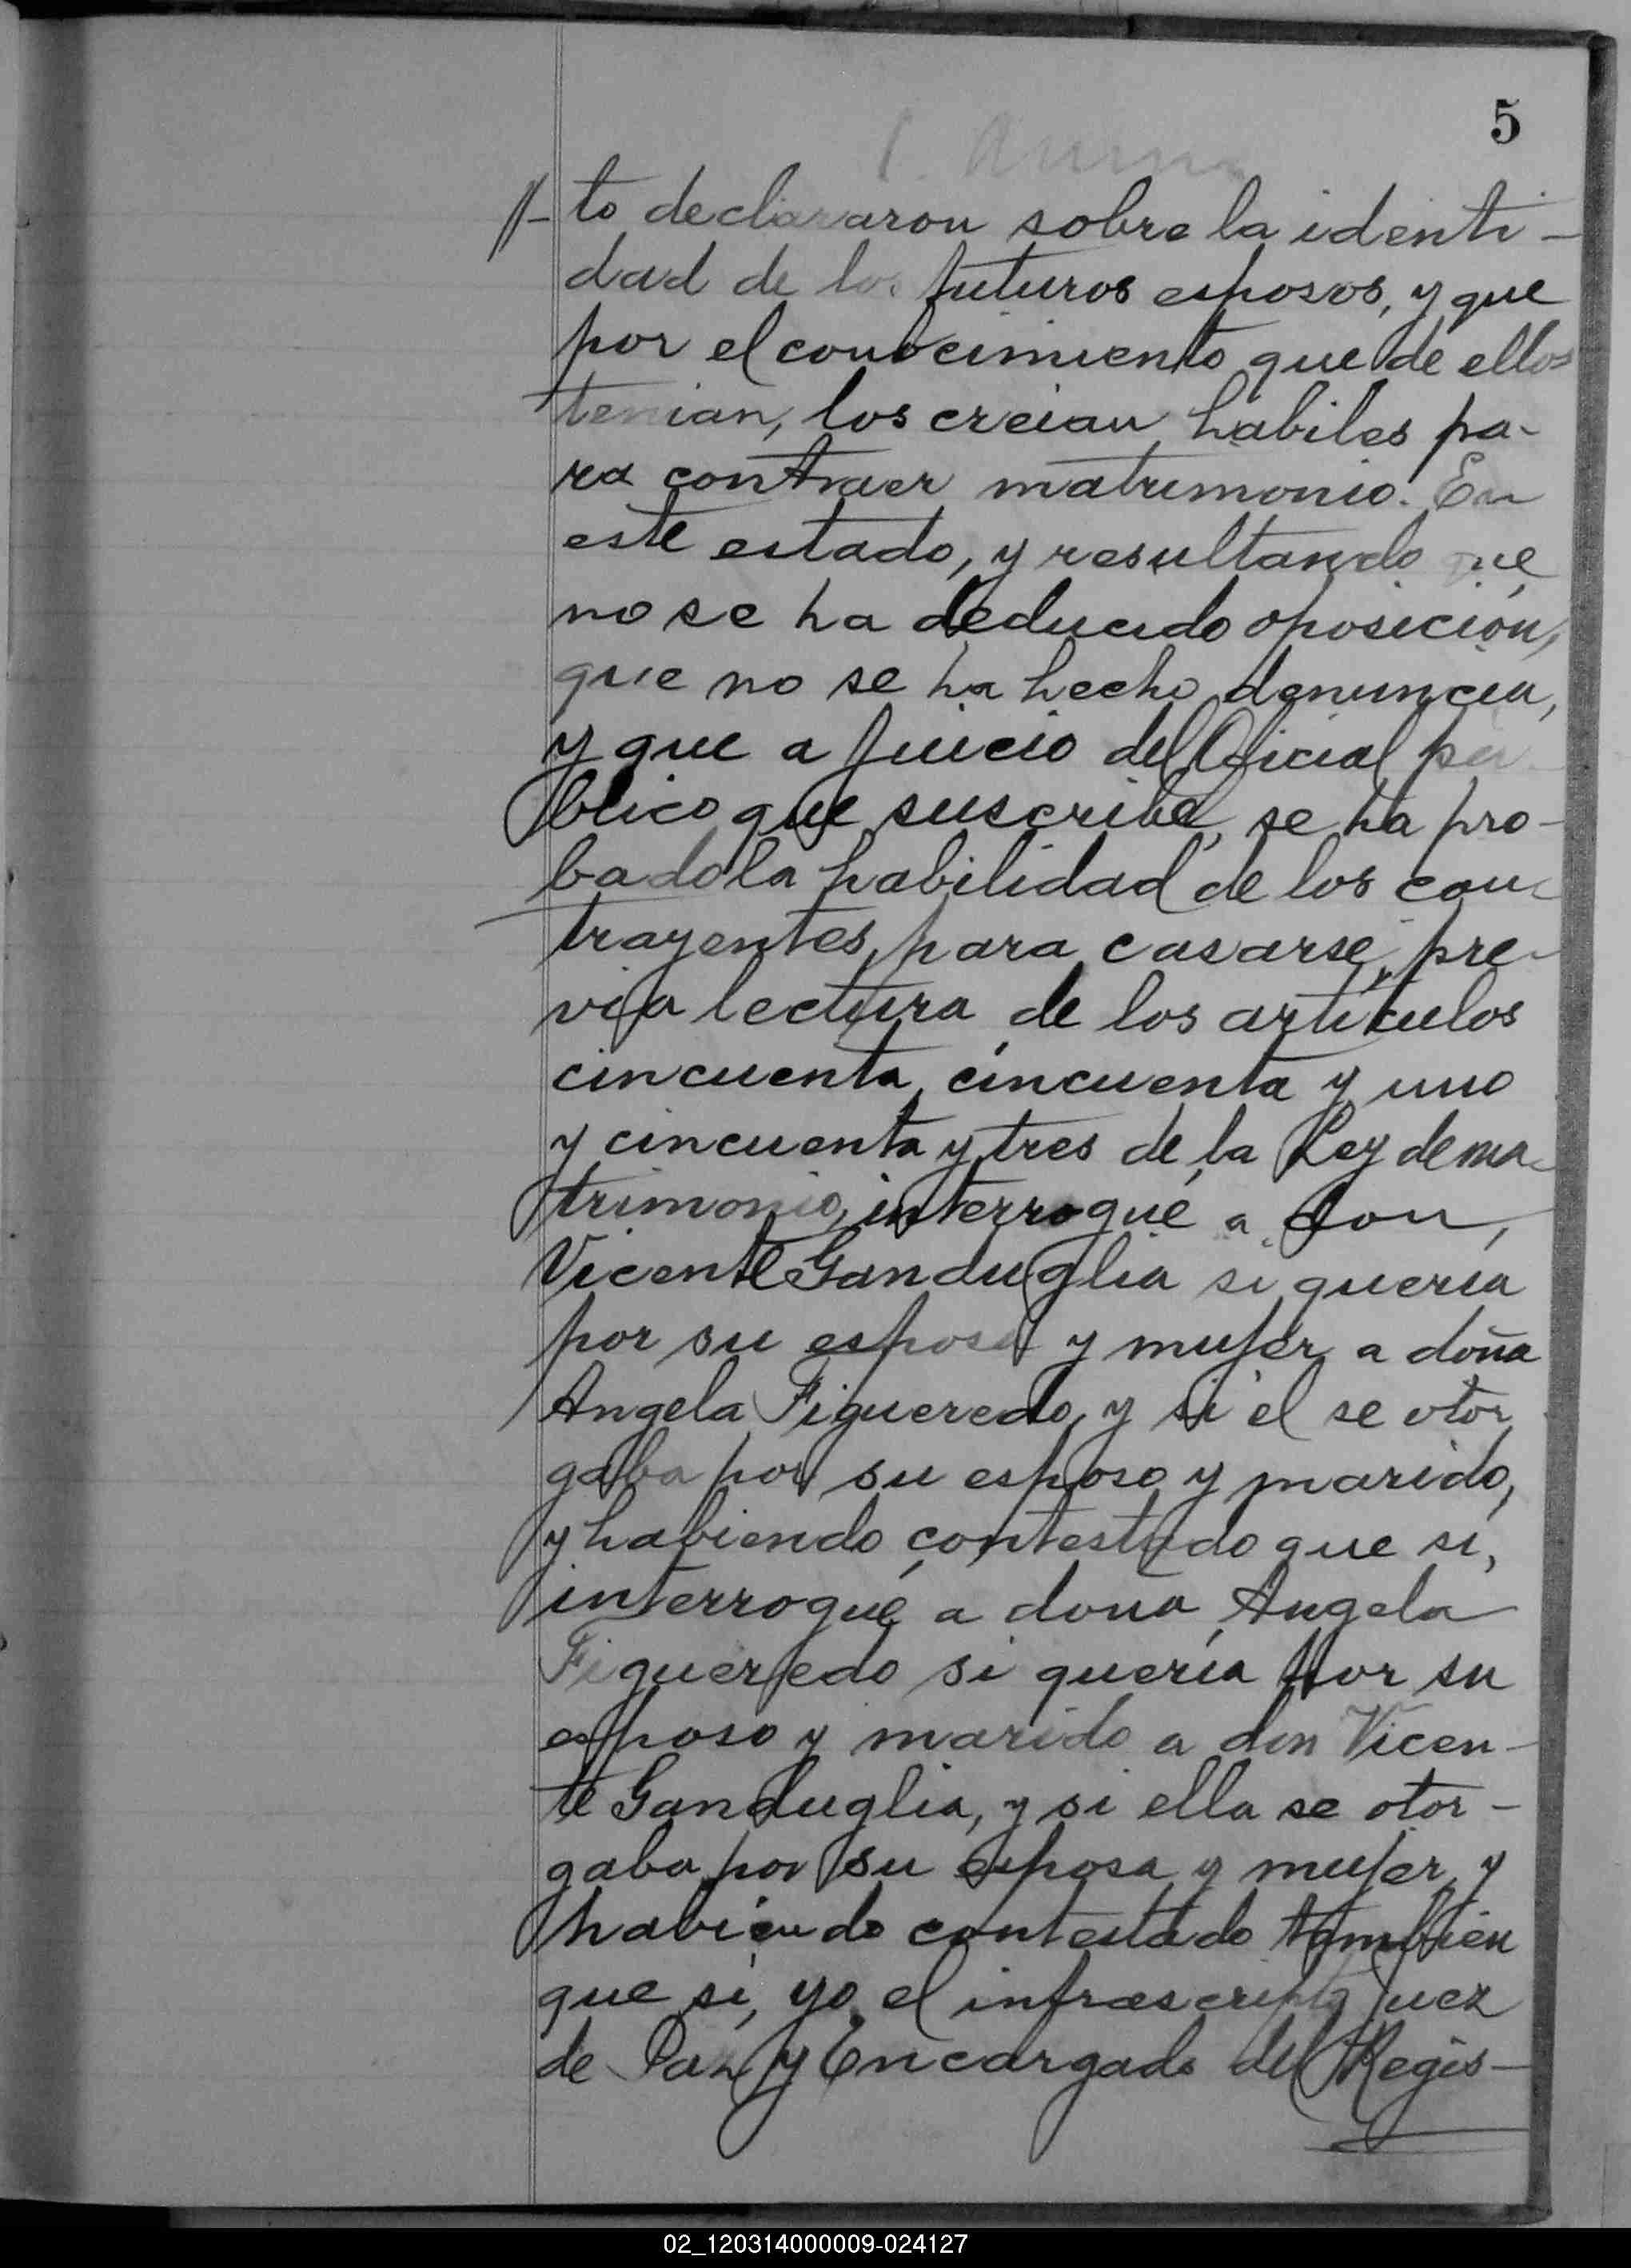 5
//- to declararon sobre la identi-
dad de los futuros esposos, y que
por el conocimiento que de ellos
tenian, los creian habiles pa-
ra contraer matrimonio. En
este estado, y resultando que
no se ha deducido oposición,
que no se ha hecho denuncia,
y que a juicio del Oficial pú-
blico que suscribe, se ha pro-
bado la habilidad de los con-
trayentes para casarse, pre-
via lectura de los artículos
cincuenta, cincuenta y uno
y cincuenta y tres de la Ley de ma-
trimonio, interrogué a don,
Vicente Ganduglia si quería
por su esposa y mujer a doña
Angela Figueredo, y si él se otor
gaba por su esposo y marido,
y habiendo contestado que sí,
interrogué a doña Angela
Figueredo si quería por su
esposo y marido a don Vicen-
te Ganduglia, y si ella se otor-
gaba por su esposa y mujer, y
habiendo contestado también
que sí, yo, el infrascripto Juez
de Paz y Encargado del Regis-
02_120314000009-024127